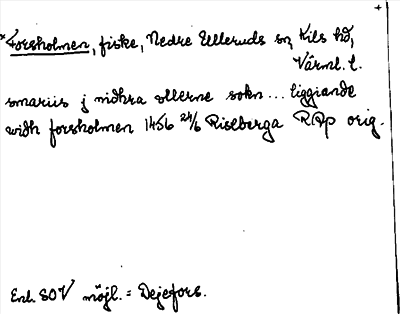 *Forsholmen, fiske, Nedre Ulleruds sn, Kils hd,
Värml. l.
smariis j nidhra ollerne sokn... liggiande
widh forsholmen 1456 24/6 Riseberga RPp orig.
Enl. SOV möjl. = Dejefors.